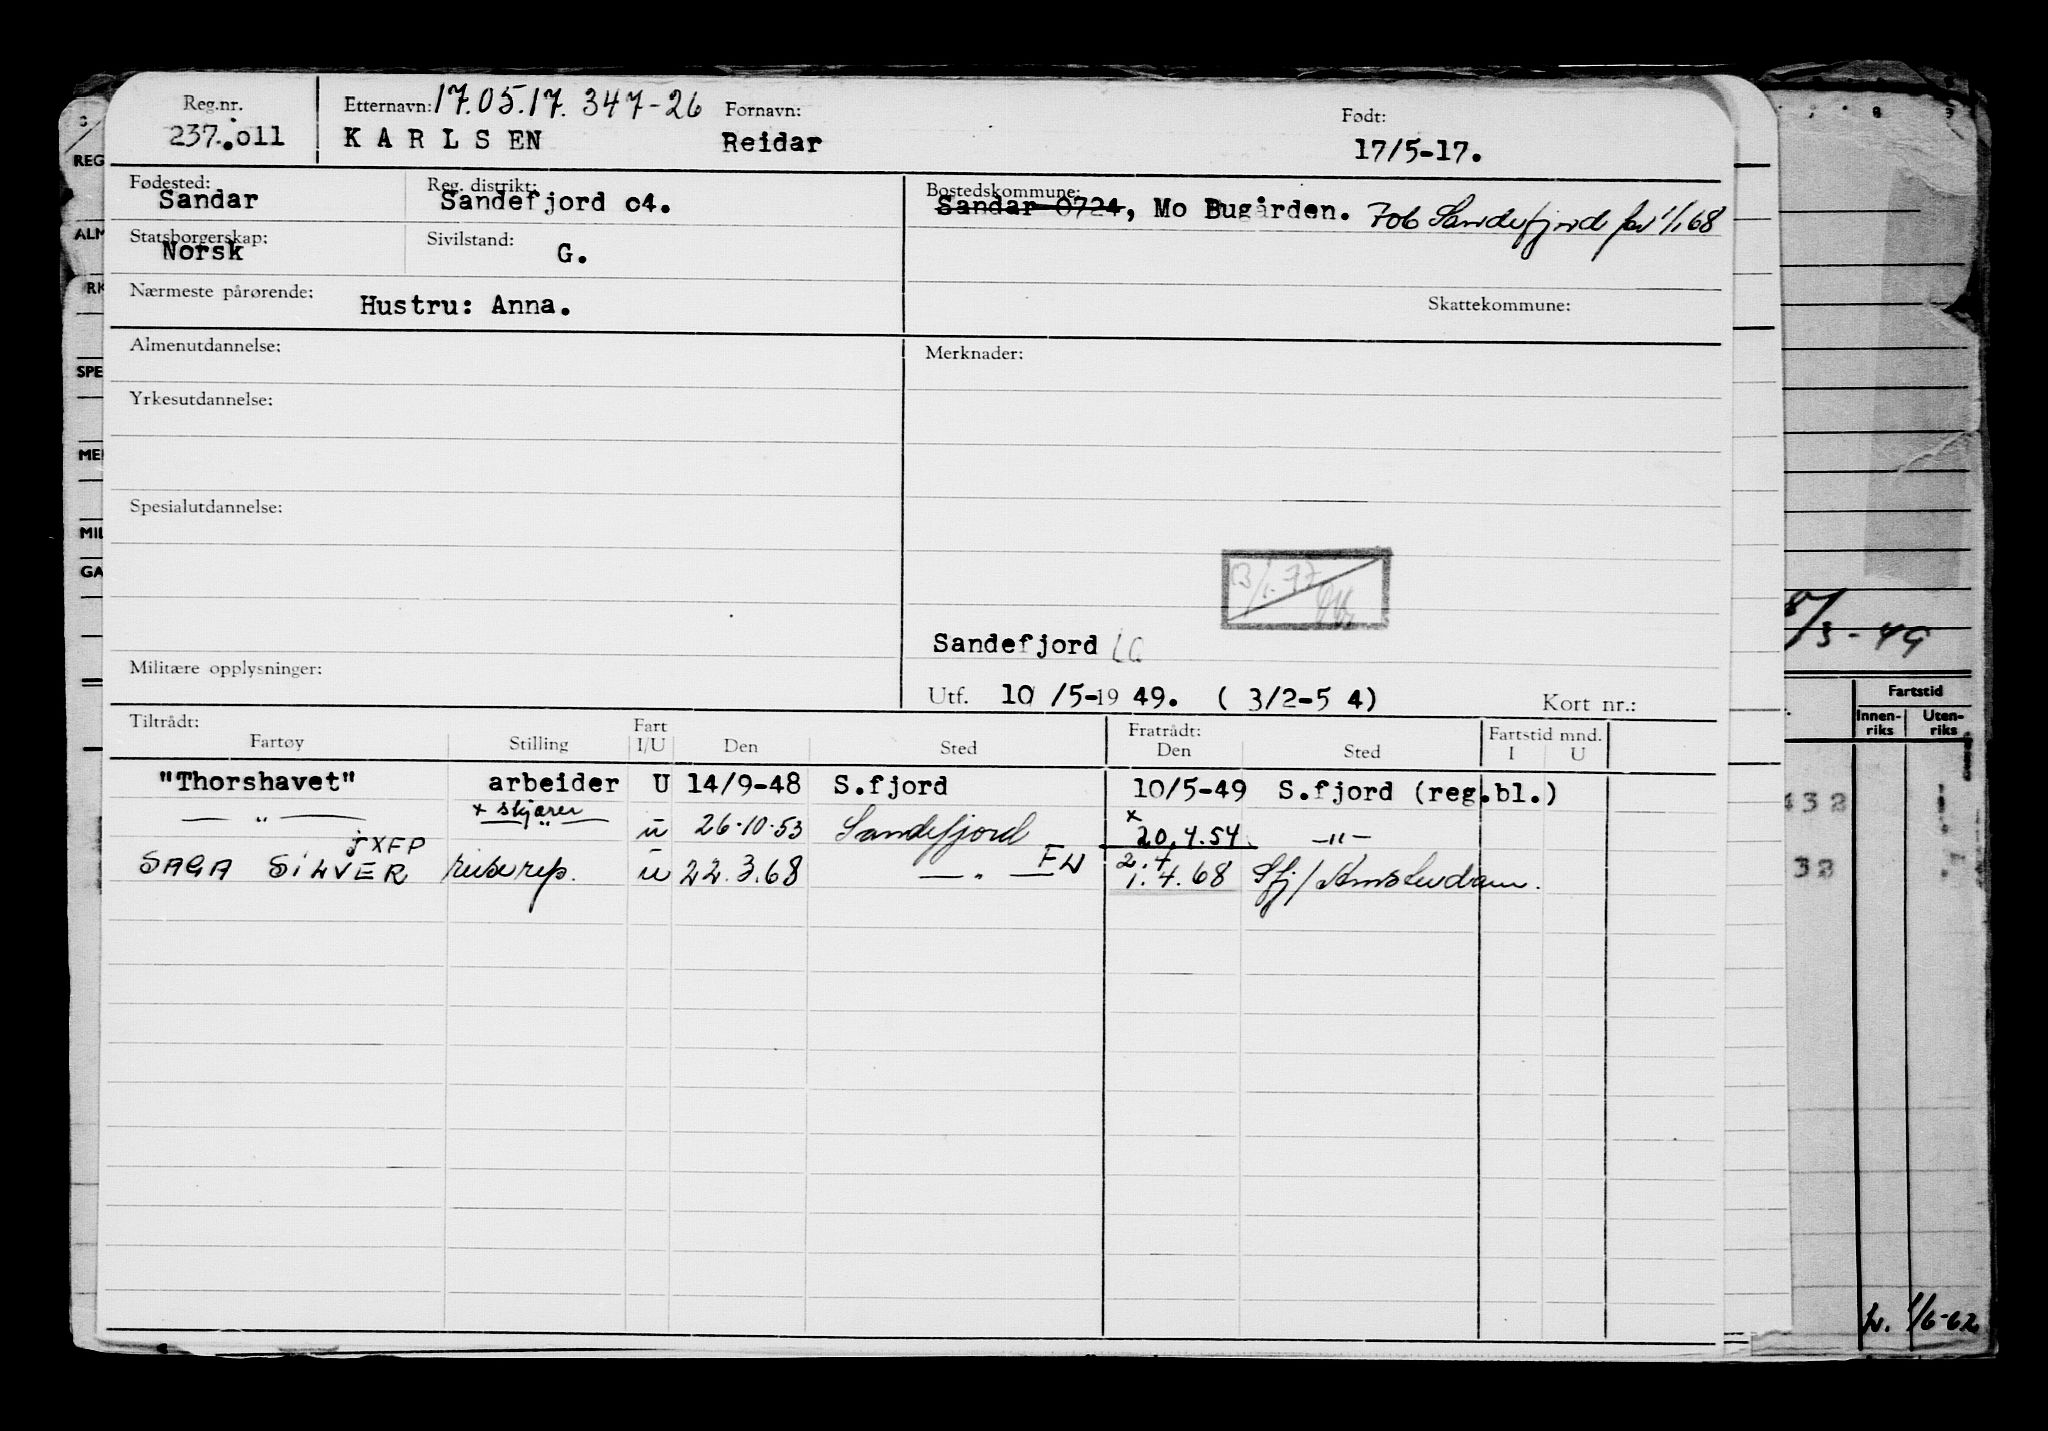 Reg.nr. Etternavn: 17.05.17. 347-26 Fornavn: Født:
237.011 KARLSEN Reidar 17/5-17.
Fødested: Reg. distrikt: Bostedskommune:
Sandar Sandefjord 04. Sandar 0724, Mo Bugården. 706 Sandefjord fra 1/1 68
Statsborgerskap: Sivilstand:
Norsk G.
Nærmeste pårørende: Hustru: Anna. Skattekommune:
Almenutdannelse: Merknader:
Yrkesutdannelse:
Spesialutdannelse:
13/1.77
Sandefjord
Militære opplysninger:
Utf. 10 /5-19 49. ( 3/2-5 4) Kort nr.:
Tiltrådt: Fart Fratrådt: Fartstid mnd.
Fartøy Stilling I/U Den Sted Den Sted I U
"Thorshavet" arbeider U 14/9-48 S.fjord 10/5-49 S.fjord (reg.bl.)
— " — x skjærer u 26.10.53 Sandefjord x 20.4.54 —"—
JXFP
SAGA SILVER reiserep. u 22.3.68 — " — FW 2.4 1.4.68 Sfj/Amsterdam.
REG
ALM
SPE
MIL
GA
8/3-49
Fartstid
Innen-riks Uten-riks
432
32
1/6-62